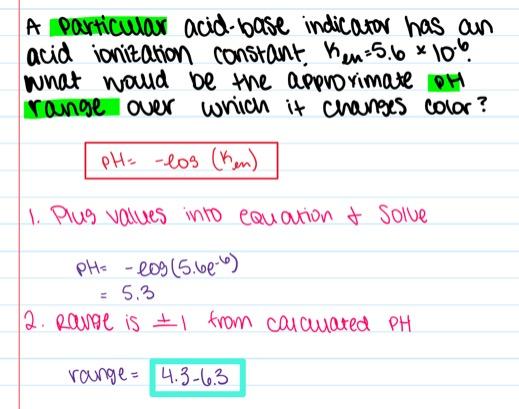 A particular acid-base indicator has an
acid ionization constant, Ken=5.6 × 10⁻⁶.
What would be the approximate pH
range over which it changes color?
pH= -log (Ken)
1. Plug values into equation & Solve
pH= -log(5.6e⁻⁶)
= 5.3
2. Range is ±1 from calculated pH
range= 4.3-6.3